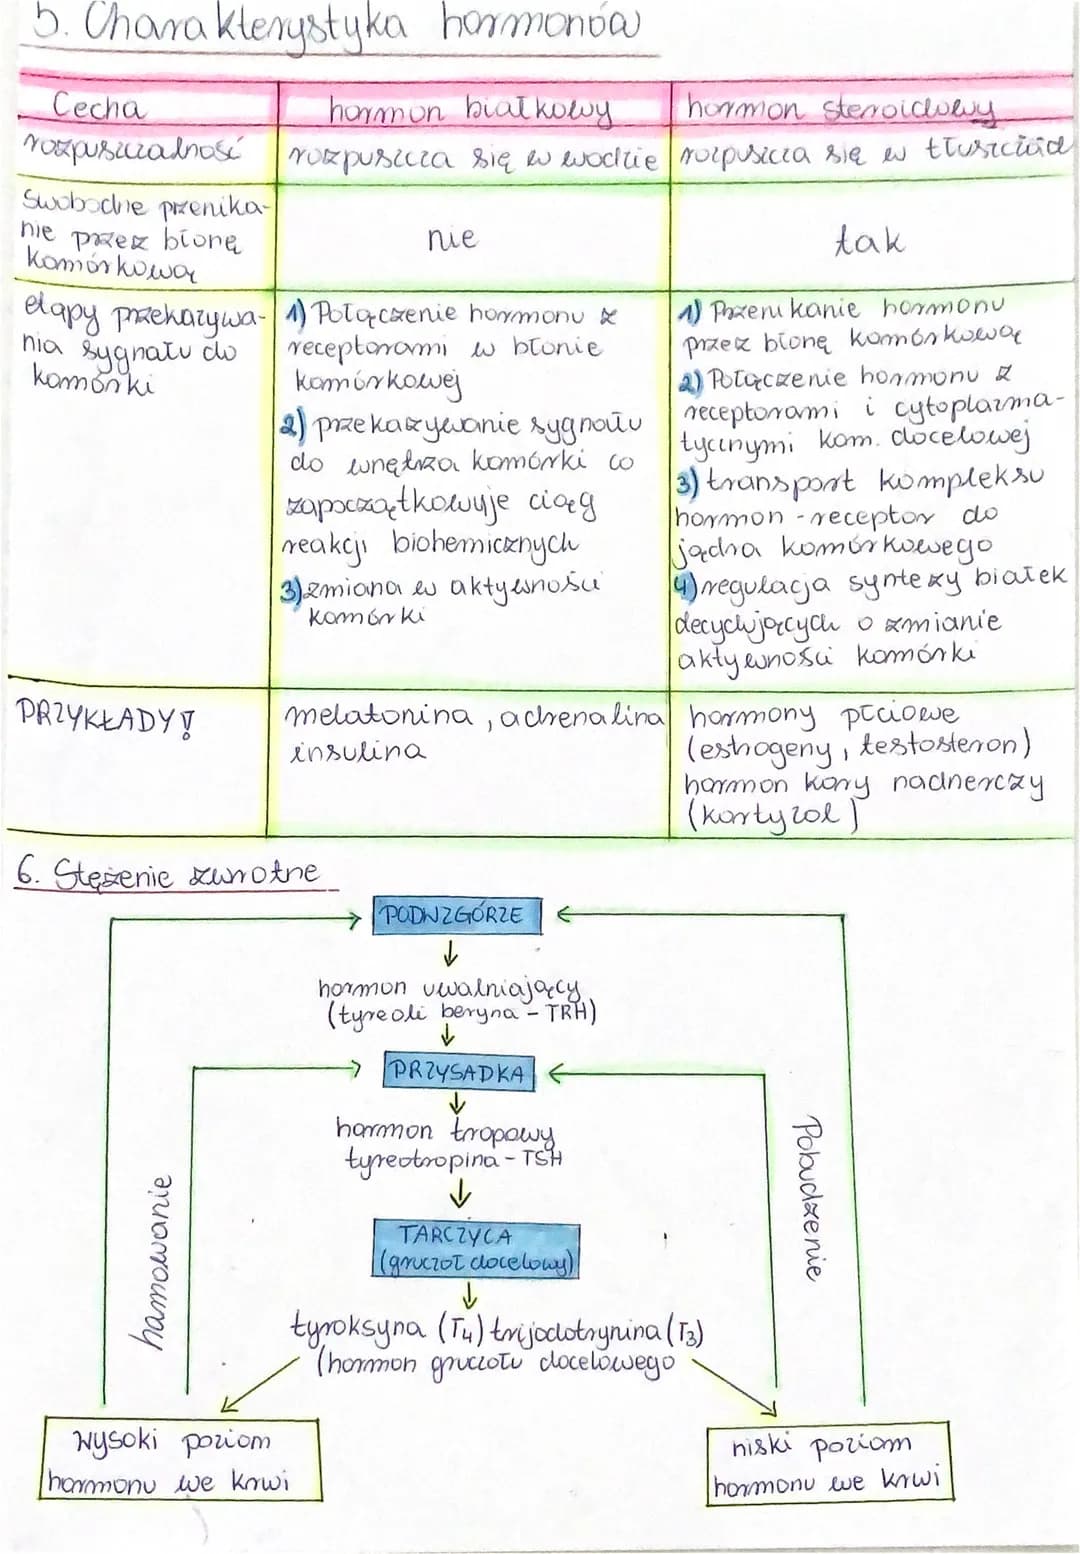 5. Charakterystyka hormonów
Cecha
hormon białkowy
hormon steroidowy
rozpuszczalność
rozpuszcza się w wodzie
rozpuszcza się w tłuszczach
Swobodne przenika-
nie przez błonę
komórkową
nie
tak
etapy przekazywa-
nia sygnału do
komórki
1) Połączenie hormonu z
receptorami w błonie
komórkowej
2) przekazywanie sygnału
do wnętrza komórki co
zapoczątkowuje ciąg
reakcji biohemicznych
3) zmiana w aktywności
komórki
1) Przenikanie hormonu
przez błonę komórkową
2) Połączenie hormonu z
receptorami i cytoplazma-
tycznymi kom. docelowej
3) transport kompleksu
hormon - receptor do
jądra komórkowego
4) regulacja syntezy białek
decydujących o zmianie
aktywności komórki
PRZYKŁADY!
melatonina, adrenalina
insulina
hormony płciowe
(estrogeny, testosteron)
hormon kory nadnerczy
(kortyzol)
6. Stężenie zwrotne
PODWZGÓRZE
hormon uwalniający
(tyreoli beryna - TRH)
PRZYSADKA
hormon tropowy
tyreotropina - TSH
TARCZYCA
(gruczoł docelowy)
tyroksyna (T4) trijodotrynina (T3)
(hormon gruczołu docelowego
hamowanie
Pobudzenie
Wysoki poziom
hormonu we krwi
niski poziom
hormonu we krwi